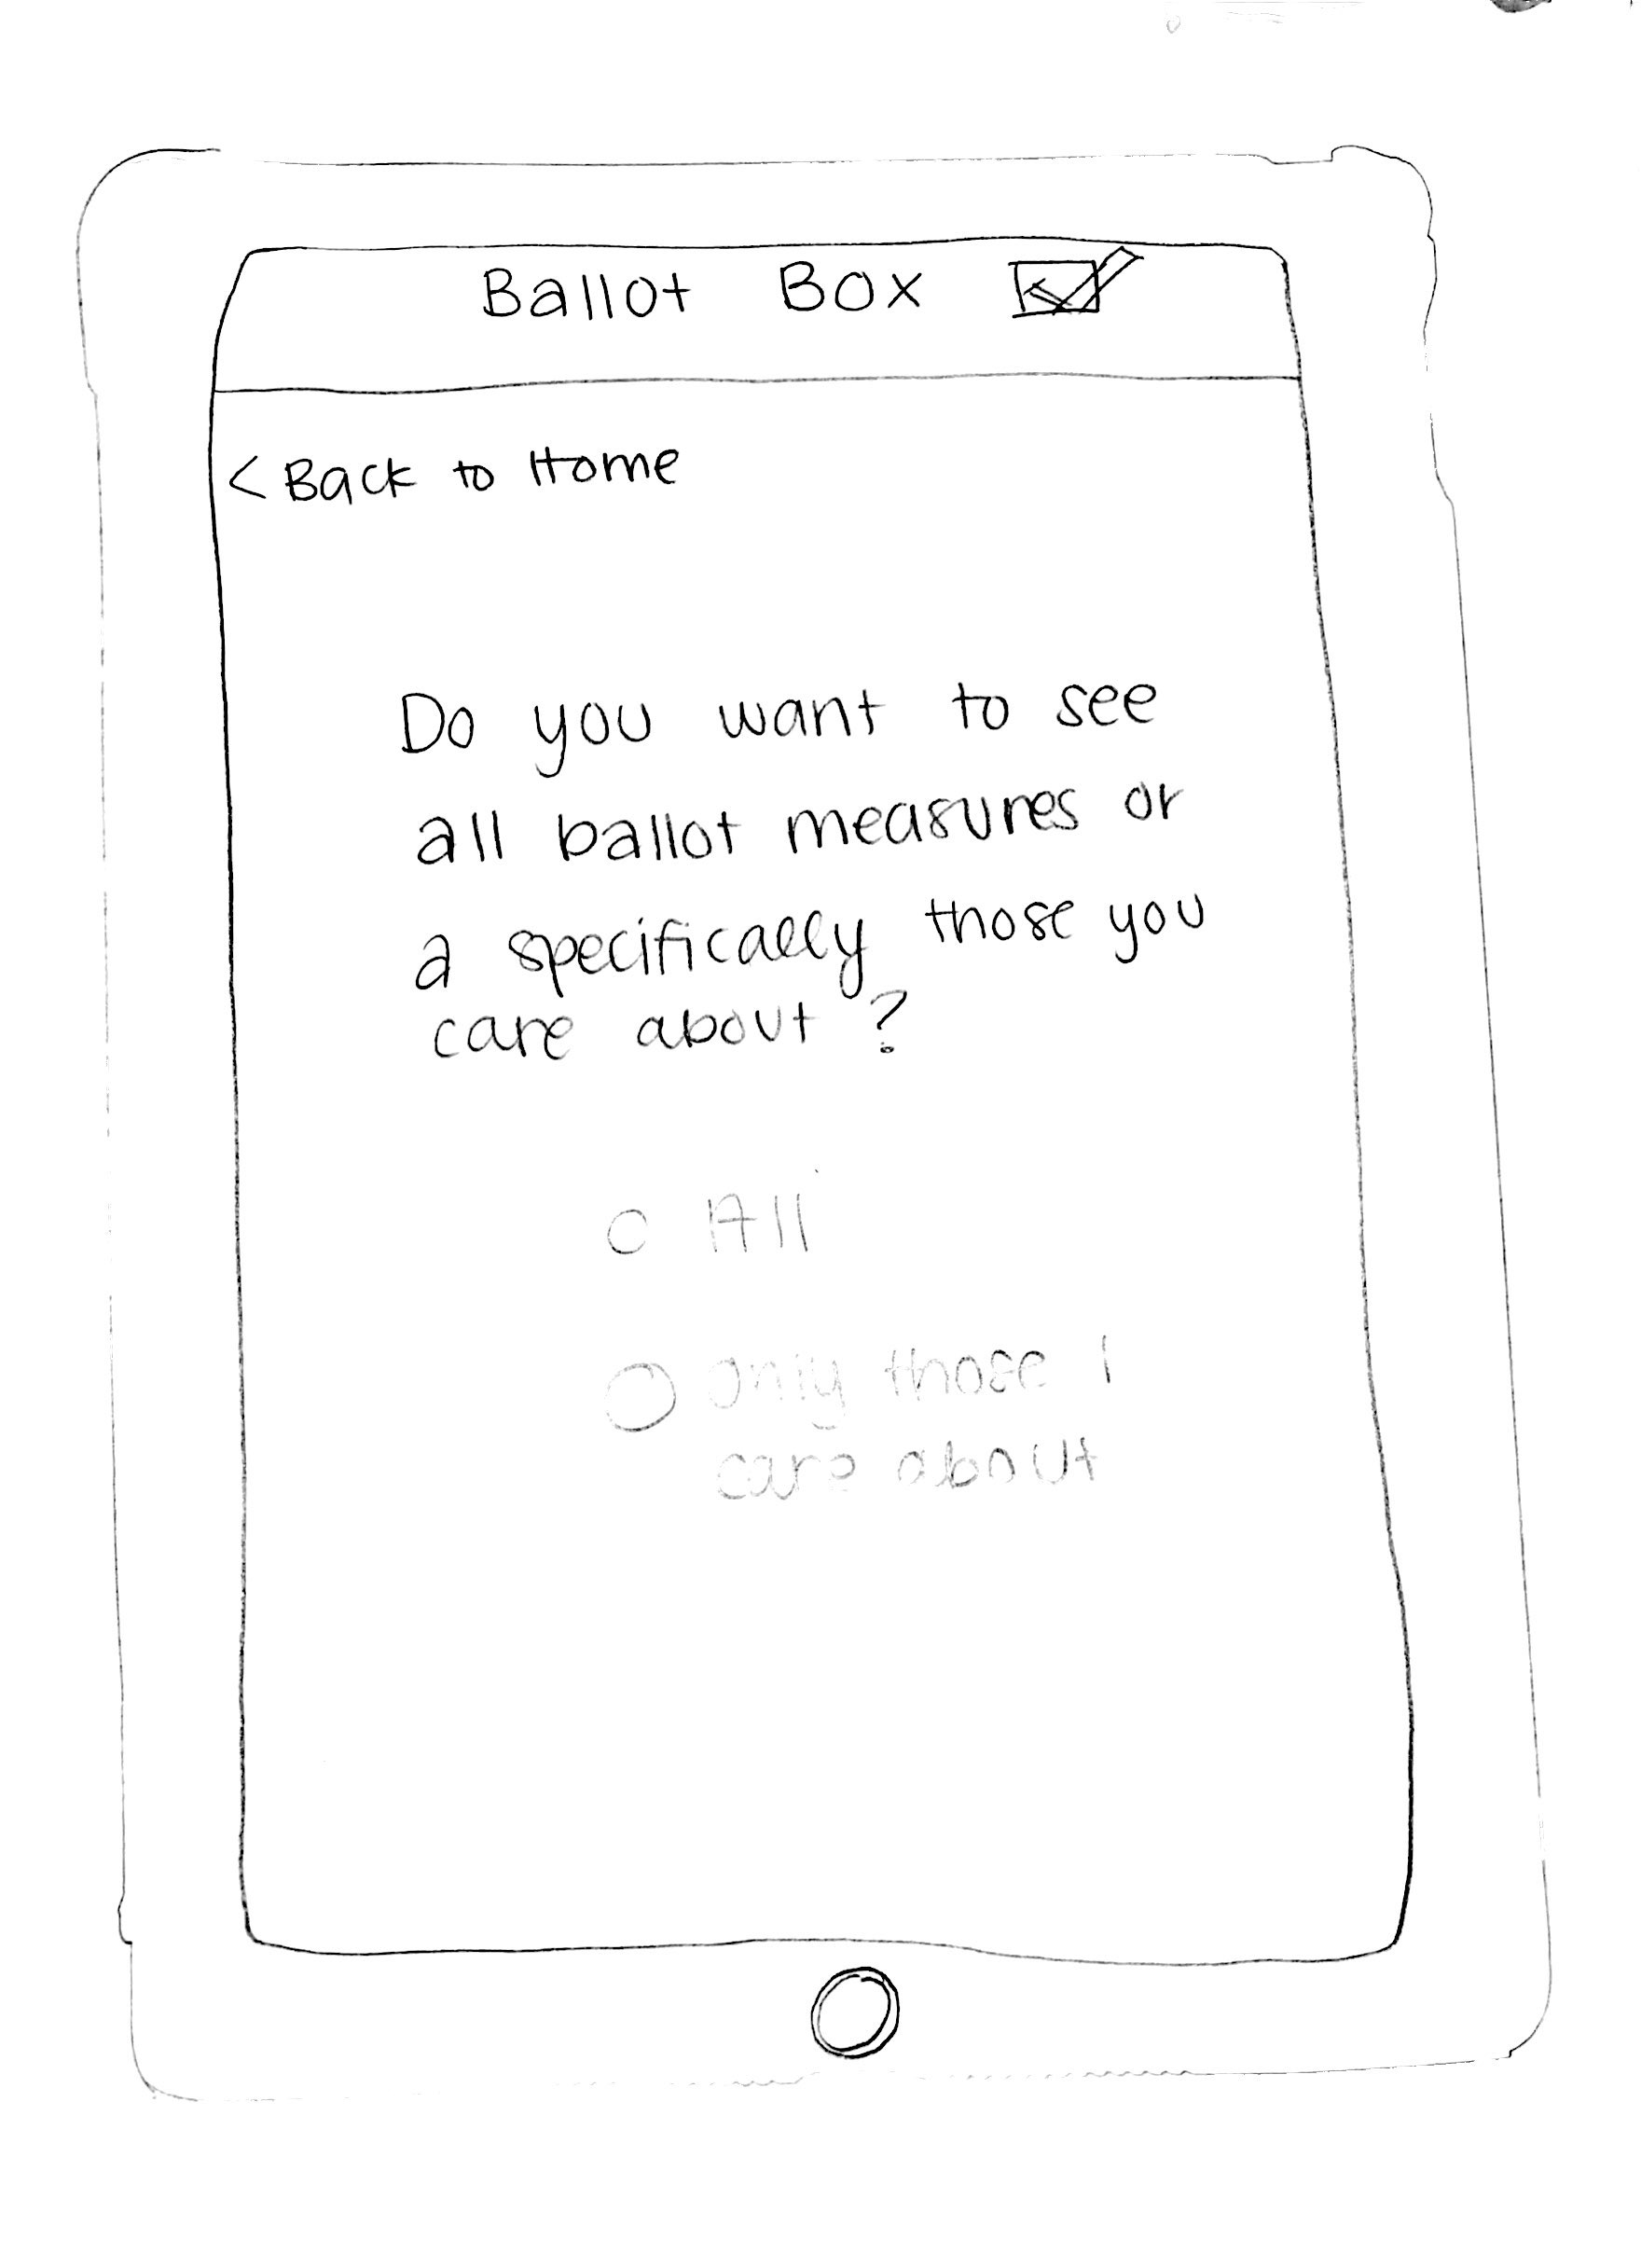 Ballot Box
< Back to Home
Do you want to see
all ballot measures or
a specifically those you
care about?
All
Only those I
care about